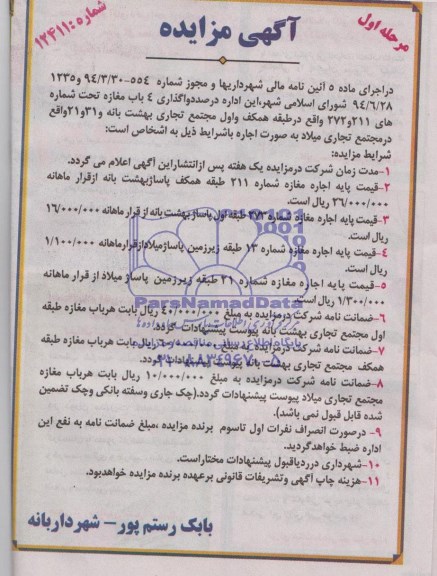 مرحله اول
آگهی مزایده
شماره: ۱۲۴۱۱
دراجرای ماده ۵ آئین نامه مالی شهرداریها و مجوز شماره ۵۵۴-۹۴/۳/۳۰ و۱۲۳۵
۹۴/۶/۲۸ شورای اسلامی شهر،این اداره درصددواگذاری ۴ باب مغازه تحت شماره
های ۲۱۱و۲۷۲ واقع درطبقه همکف واول مجتمع تجاری بهشت بانه و۳۱و۲۱واقع
درمجتمع تجاری میلاد به صورت اجاره باشرایط ذیل به اشخاص است:
شرایط مزایده:
۱-مدت زمان شرکت درمزایده یک هفته پس ازانتشاراین آگهی اعلام می گردد.
۲-قیمت پایه اجاره مغازه شماره ۲۱۱ طبقه همکف پاساژبهشت بانه ازقرار ماهانه
۲۶/۰۰۰/۰۰۰ ریال است.
۳-قیمت پایه اجاره مغازه شماره ۲۷۲ طبقه اول پاساژ بهشت بانه از قرار ماهانه ۱۶/۰۰۰/۰۰۰
ریال است.
۴-قیمت پایه اجاره مغازه شماره ۱۳ طبقه زیرزمین پاساژمیلادازقرارماهانه ۱/۱۰۰/۰۰۰
ریال است.
۵-قیمت پایه اجاره مغازه شماره ۲۱ طبقه زیرزمین پاساژ میلاد از قرار ماهانه
۱/۳۰۰/۰۰۰ ریال است.
ParsNamadData
۶-ضمانت نامه شرکت درمزایده به مبلغ ۴۰/۰۰۰/۰۰۰ ریال بابت هرباب مغازه طبقه
اول مجتمع تجاری بهشت بانه پیوست پیشنهادات گردد.
۷-ضمانت نامه شرکت درمزایده به مبلغ ریال بابت هرباب مغازه طبقه
همکف مجتمع تجاری بهشت بانه پیوست پیشنهادات گردد.
۸-ضمانت نامه شرکت درمزایده به مبلغ ۱۰/۰۰۰/۰۰۰ ریال بابت هرباب مغازه
مجتمع تجاری میلاد پیوست پیشنهادات گردد.(چک جاری وسفته بانکی وچک تضمین
شده قابل قبول نمی باشد).
۹- درصورت انصراف نفرات اول تاسوم برنده مزایده ،مبلغ ضمانت نامه به نفع این
اداره ضبط خواهدگردید.
۱۰-شهرداری درردیاقبول پیشنهادات مختاراست.
۱۱-هزینه چاپ آگهی وتشریفات قانونی برعهده برنده مزایده خواهدبود.
بابک رستم پور- شهرداربانه